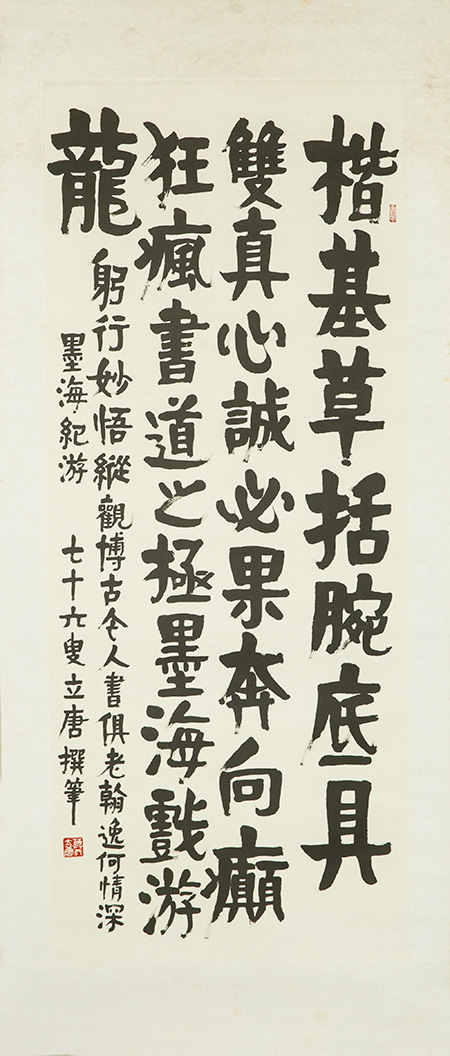 楷基草括腕底具
雙真心誠必果奔向癲
狂瘋書道之極墨海戲游
龍
躬行妙悟縱觀博古今人書俱老翰逸何情深
墨海紀游 七十六叟立唐撰筆